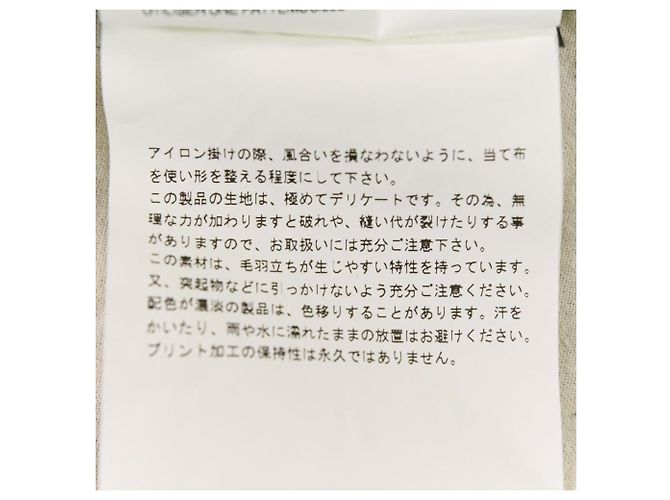 アイロン掛けの際、風合いを損なわないように、当て布
を使い形を整える程度にして下さい。
この製品の生地は、極めてデリケートです。その為、無
理な力が加わりますと破れや、縫い代が裂けたりする事
がありますので、お取扱いには充分ご注意下さい。
この素材は、毛羽立ちが生じやすい特性を持っています。
又、突起物などに引っかけないよう充分ご注意ください。
配色が濃淡の製品は、色移りすることがあります。汗を
かいたり、雨や水に濡れたままの放置はお避けください。
プリント加工の保持性は永久ではありません。